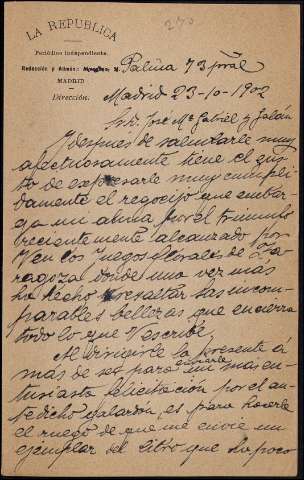 270
LA REPÚBLICA
Periódico independiente.
Redacción y Admón:
MADRID
Dirección.
Palma 73 pral
Madrid 23-10-1902
Sr. D. José Mª Gabriel y Galán
Y después de saludarle muy
afectuosamente tiene el gus-
to de expresarle muy cumpli-
damente el regocijo que embar-
ga mi alma por el triunfo
recientemente alcanzado por
V en los Juegos Florales de Za-
ragoza, donde una vez mas
ha hecho resaltar las incom-
parables bellezas que encierra
todo lo que V escribe.
Al dirigirle la presente á
más de ser para darle mi mas en-
tusiasta felicitación por el an-
tedicho galardon, es para hacerle
el ruego de que me envie un
ejemplar del libro que ha poco